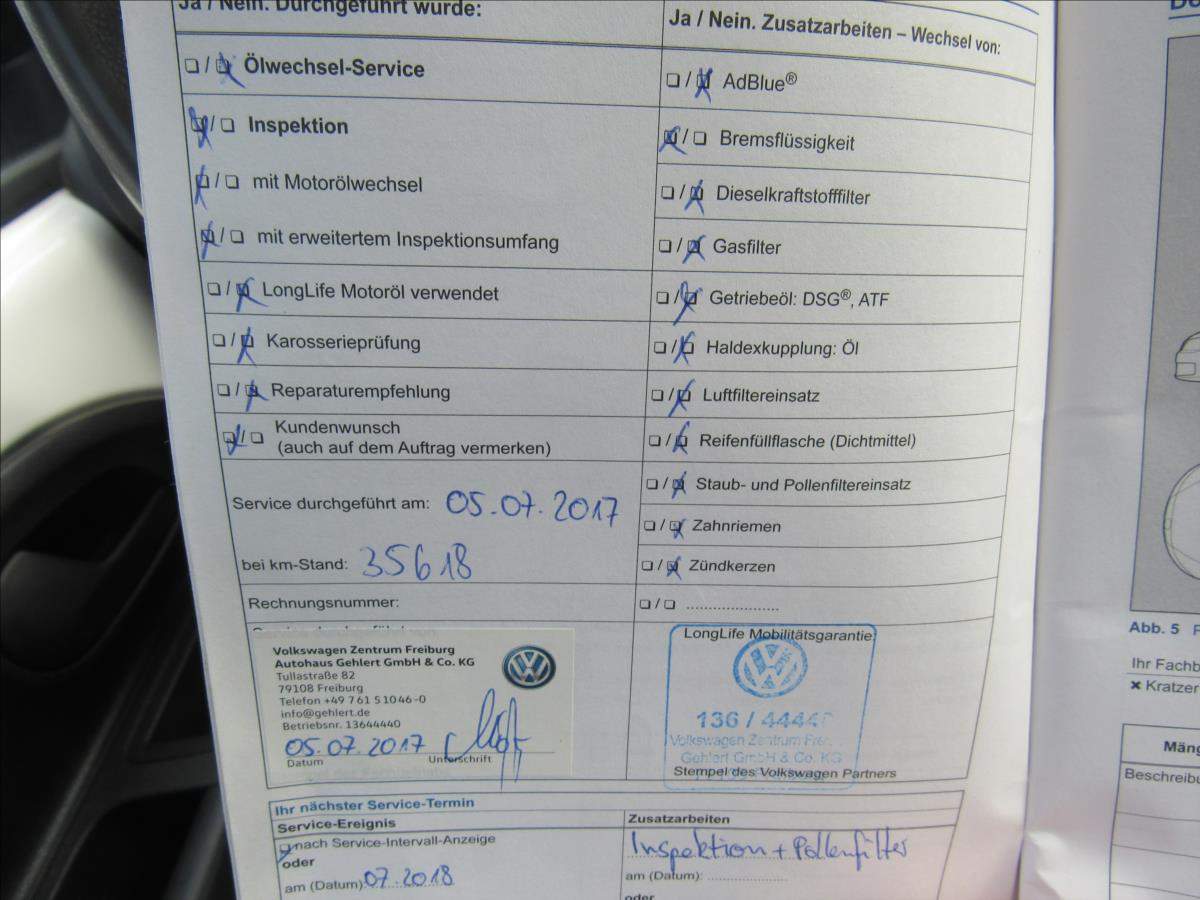 Ja / Nein. Durchgeführt wurde:
Ölwechsel-Service
Inspektion
mit Motorölwechsel
mit erweitertem Inspektionsumfang
LongLife Motoröl verwendet
Karosserieprüfung
Reparaturempfehlung
Kundenwunsch
(auch auf dem Auftrag vermerken)
Service durchgeführt am: 05.07.2017
bei km-Stand: 35618
Rechnungsnummer:
Ja / Nein. Zusatzarbeiten – Wechsel von:
AdBlue®
Bremsflüssigkeit
Dieselkraftstofffilter
Gasfilter
Getriebeöl: DSG®, ATF
Haldexkupplung: Öl
Luftfiltereinsatz
Reifenfüllflasche (Dichtmittel)
Staub- und Pollenfiltereinsatz
Zahnriemen
Zündkerzen
Volkswagen Zentrum Freiburg
Autohaus Gehlert GmbH & Co. KG
Tullastraße 82
79108 Freiburg
Telefon +49 7 61 5 10 46-0
info@gehlert.de
Betriebsnr. 13644440
05.07.2017
Datum Unterschrift
LongLife Mobilitätsgarantie
136 / 4444
Volkswagen Zentrum
Gehlert GmbH & Co. KG
Stempel des Volkswagen Partners
Ihr nächster Service-Termin
Service-Ereignis
nach Service-Intervall-Anzeige
oder
am (Datum): 07.2018
Zusatzarbeiten
Inspektion + Pollenfilter
am (Datum):
oder
Abb. 5
Ihr Fachb
Kratzer
Mäng
Beschreibu